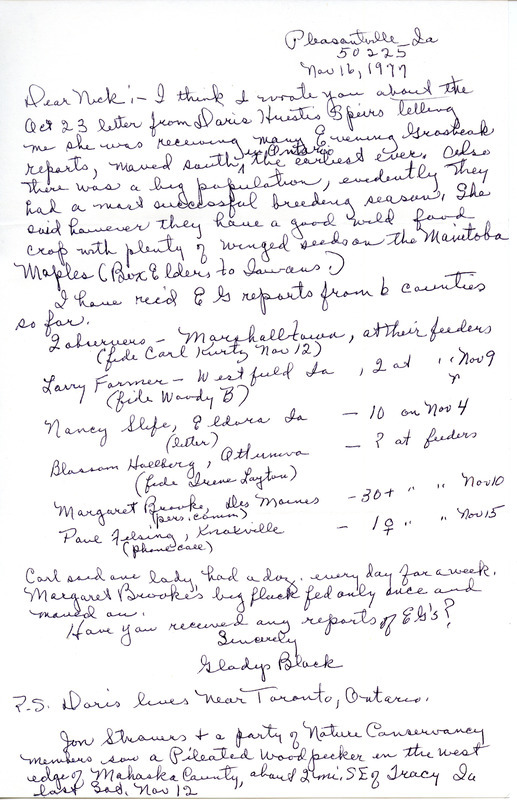 Pleasantville Ia
50225
Nov 16, 1977
Dear Nick:- I think I wrote you about the
Oct 23 letter from Doris Huestis Speirs telling
me she was receiving many Evening Grosbeak
reports, moved south in Ontario, the earliest ever. Also
there was a big population, evidently they
had a most successful breeding season. She
said however they have a good wild food
crop with plenty of winged seeds on the Manitoba
Maples (Box Elders to Iowans!)
I have rec'd E G reports from 6 counties
so far.
2 observers - Marshalltown, at their feeders
(fide Carl Kurtz Nov 12)
Larry Farmer - Westfield Ia , 2 at " " Nov 9
(fide Woody B)
Nancy Slife, Eldora Ia - 10 on Nov 4
(letter)
Blossom Hallberg, Ottumwa - ? at feeders
(fide Irene Layton)
Margaret Brooke, Des Moines - 30+ " " Nov 10
(pers. comm)
Pave Felsing, Knoxville - 1 ♀ " " Nov 15
(phone call)
Carl said one lady had a doz. every day for a week.
Margaret Brooke's big flock fed only once and
moved on.
Have you received any reports of EG's?
Sincerely
Gladys Black
P.S. Doris lives near Toronto, Ontario.
Jon Stravers + a party of Nature Conservancy
members saw a Pileated Woodpecker in the west
edge of Mahaska County, about 2 mi. SE of Tracy Ia
last Sat. Nov 12